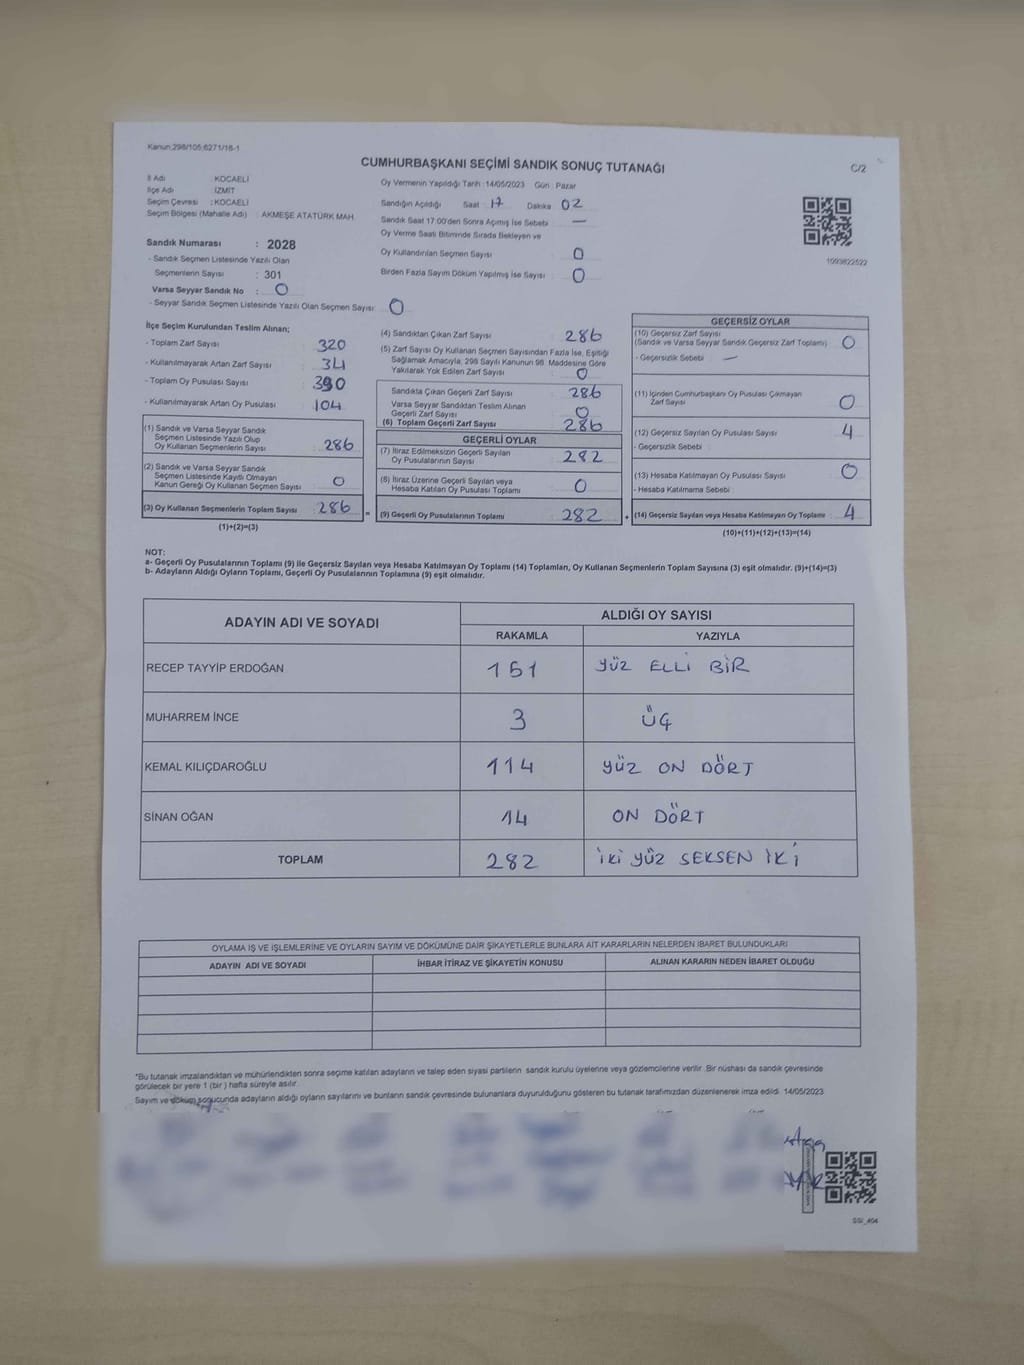 Kanun:298/105;6271/16-1
CUMHURBAŞKANI SEÇİMİ SANDIK SONUÇ TUTANAĞI
C/2
İl Adı : KOCAELİ
İlçe Adı : İZMİT
Seçim Çevresi : KOCAELİ
Seçim Bölgesi (Mahalle Adı) : AKMEŞE ATATÜRK MAH.
Oy Vermenin Yapıldığı Tarih :14/05/2023 Gün : Pazar
Sandığın Açıldığı Saat 17 Dakika 02
Sandık Saat 17:00'den Sonra Açımış İse Sebebi : —
Oy Verme Saati Bitiminde Sırada Bekleyen ve
Oy Kullandırılan Seçmen Sayısı : 0
Birden Fazla Sayım Döküm Yapılmış İse Sayısı : 0
1093822522
Sandık Numarası : 2028
- Sandık Seçmen Listesinde Yazılı Olan
Seçmenlerin Sayısı : 301
Varsa Seyyar Sandık No : 0
- Seyyar Sandık Seçmen Listesinde Yazılı Olan Seçmen Sayısı: 0
İlçe Seçim Kurulundan Teslim Alınan;
- Toplam Zarf Sayısı : 320
- Kullanılmayarak Artan Zarf Sayısı : 34
- Toplam Oy Pusulası Sayısı : 390
- Kullanılmayarak Artan Oy Pusulası : 104
(1) Sandık ve Varsa Seyyar Sandık
Seçmen Listesinde Yazılı Olup
Oy Kullanan Seçmenlerin Sayısı : 286
(2) Sandık ve Varsa Seyyar Sandık
Seçmen Listesinde Kayıtlı Olmayan
Kanun Gereği Oy Kullanan Seçmen Sayısı : 0
(3) Oy Kullanan Seçmenlerin Toplam Sayısı : 286
(1)+(2)=(3)
=
(4) Sandıktan Çıkan Zarf Sayısı : 286
(5) Zarf Sayısı Oy Kullanan Seçmen Sayısından Fazla İse, Eşitliği
Sağlamak Amacıyla, 298 Sayılı Kanunun 98. Maddesine Göre
Yakılarak Yok Edilen Zarf Sayısı : 0
Sandıkta Çıkan Geçerli Zarf Sayısı : 286
Varsa Seyyar Sandıktan Teslim Alınan
Geçerli Zarf Sayısı : 0
(6) Toplam Geçerli Zarf Sayısı : 286
GEÇERLİ OYLAR
(7) İtiraz Edilmeksizin Geçerli Sayılan
Oy Pusulalarının Sayısı : 282
(8) İtiraz Üzerine Geçerli Sayılan veya
Hesaba Katılan Oy Pusulaları Toplamı : 0
(9) Geçerli Oy Pusulalarının Toplamı : 282
+
GEÇERSİZ OYLAR
(10) Geçersiz Zarf Sayısı
(Sandık ve Varsa Seyyar Sandık Geçersiz Zarf Toplamı) : 0
- Geçersizlik Sebebi : —
(11) İçinden Cumhurbaşkanı Oy Pusulası Çıkmayan
Zarf Sayısı : 0
(12) Geçersiz Sayılan Oy Pusulası Sayısı : 4
- Geçersizlik Sebebi :
(13) Hesaba Katılmayan Oy Pusulası Sayısı : 0
- Hesaba Katılmama Sebebi :
(14) Geçersiz Sayılan veya Hesaba Katılmayan Oy Toplamı : 4
(10)+(11)+(12)+(13)=(14)
NOT:
a- Geçerli Oy Pusulalarının Toplamı (9) ile Geçersiz Sayılan veya Hesaba Katılmayan Oy Toplamı (14) Toplamları, Oy Kullanan Seçmenlerin Toplam Sayısına (3) eşit olmalıdır. (9)+(14)=(3)
b- Adayların Aldığı Oyların Toplamı, Geçerli Oy Pusulalarının Toplamına (9) eşit olmalıdır.
ADAYIN ADI VE SOYADI ALDIĞI OY SAYISI
RAKAMLA YAZIYLA
RECEP TAYYİP ERDOĞAN 151 YÜZ ELLİ BİR
MUHARREM İNCE 3 ÜÇ
KEMAL KILIÇDAROĞLU 114 YÜZ ON DÖRT
SİNAN OĞAN 14 ON DÖRT
TOPLAM 282 İKİ YÜZ SEKSEN İKİ
OYLAMA İŞ VE İŞLEMLERİNE VE OYLARIN SAYIM VE DÖKÜMÜNE DAİR ŞİKAYETLERLE BUNLARA AİT KARARLARIN NELERDEN İBARET BULUNDUKLARI
ADAYIN ADI VE SOYADI İHBAR İTİRAZ VE ŞİKAYETİN KONUSU ALINAN KARARIN NEDEN İBARET OLDUĞU
*Bu tutanak imzalandıktan ve mühürlendikten sonra seçime katılan adayların ve talep eden siyasi partilerin sandık kurulu üyelerine veya gözlemcilerine verilir. Bir nüshası da sandık çevresinde
görülecek bir yere 1 (bir ) hafta süreyle asılır.
Sayım ve döküm sonucunda adayların aldığı oyların sayılarını ve bunların sandık çevresinde bulunanlara duyurulduğunu gösteren bu tutanak tarafımızdan düzenlenerek imza edildi. 14/05/2023
SSI_404